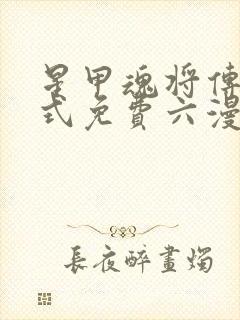 星甲魂将傳
式免費六漫
長夜醉畫燭